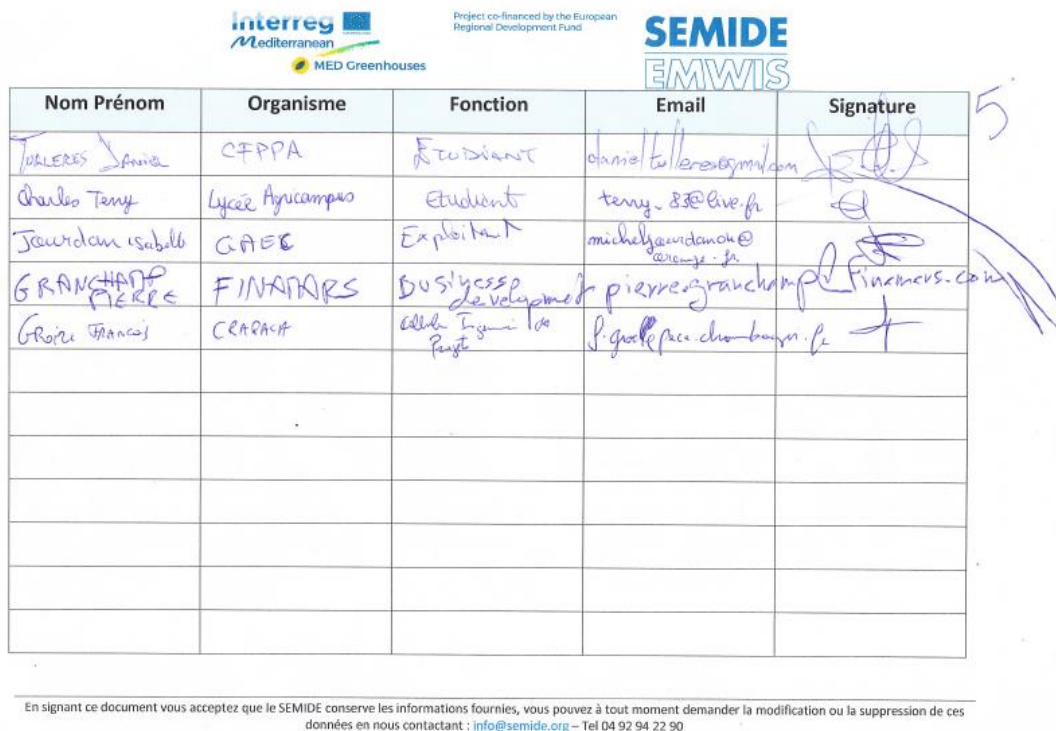 Interreg
Mediterranean
MED Greenhouses
Project co-financed by the European
Regional Development Fund
SEMIDE
EMWIS
Nom Prénom Organisme Fonction Email Signature
5
Daniel CFPPA ETUDIANT
Charles Terry Lycée Agricampus Etudiant terry_83@live.fr
Jourdan isabelle GAEC Exploitant micheljourdanon@
orange.fr
GRANCHAMP
PIERRE
FINAMARS Business
development
pierre.granchamp@finamars.com
François CRAPACA
Projet
En signant ce document vous acceptez que le SEMIDE conserve les informations fournies, vous pouvez à tout moment demander la modification ou la suppression de ces
données en nous contactant : info@semide.org – Tel 04 92 94 22 90